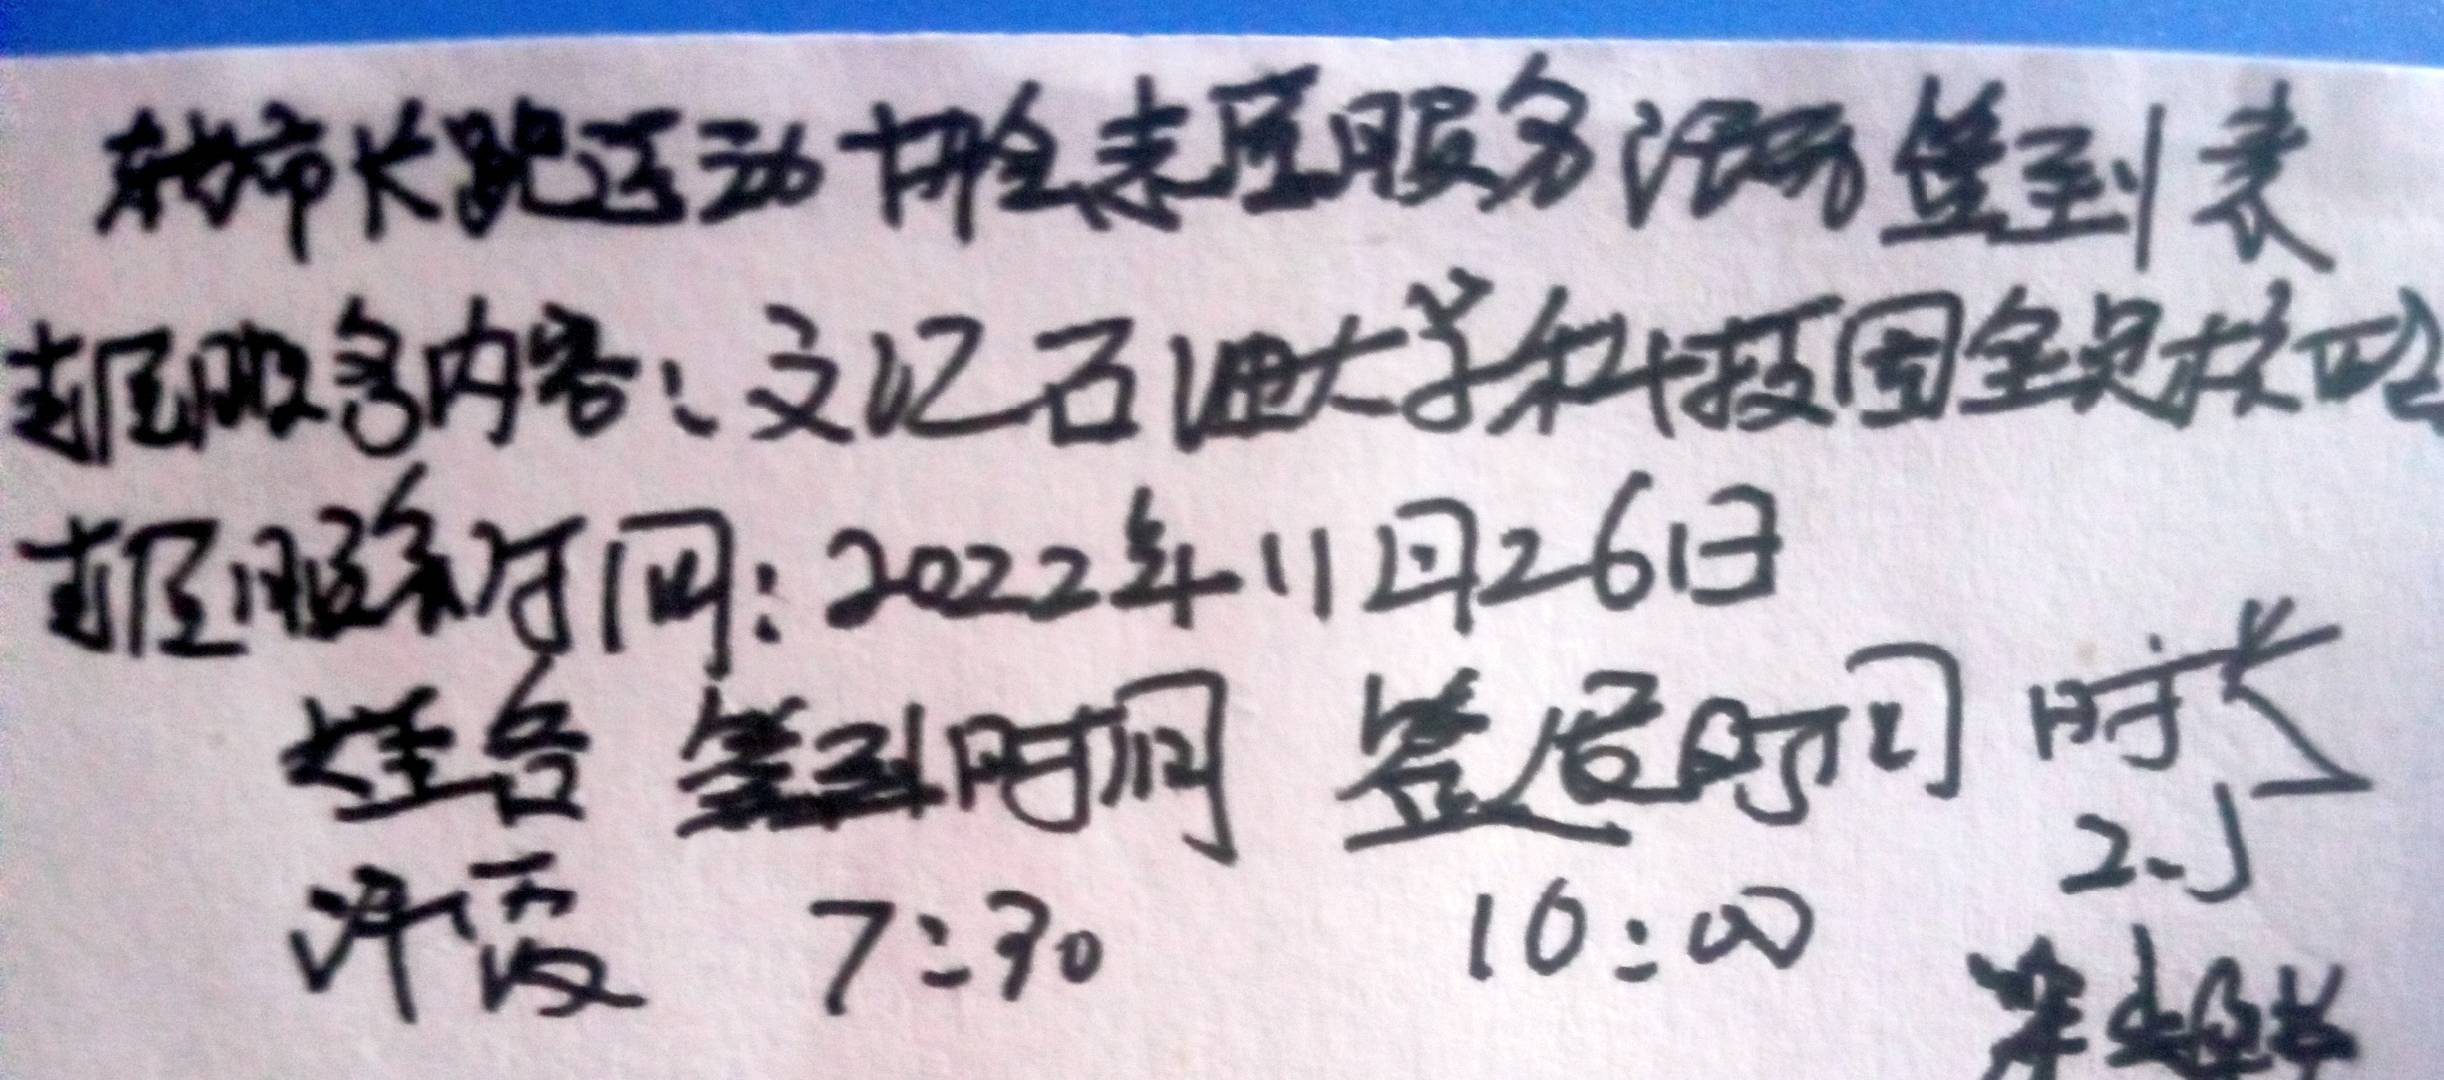 东营市长跑运动协会志愿服务活动签到表
志愿服务内容：文汇石油大学科技园全员核酸
志愿服务时间：2022年11月26日
姓名 签到时间 签退时间 时长
许霞 7:30 10:00 2.5